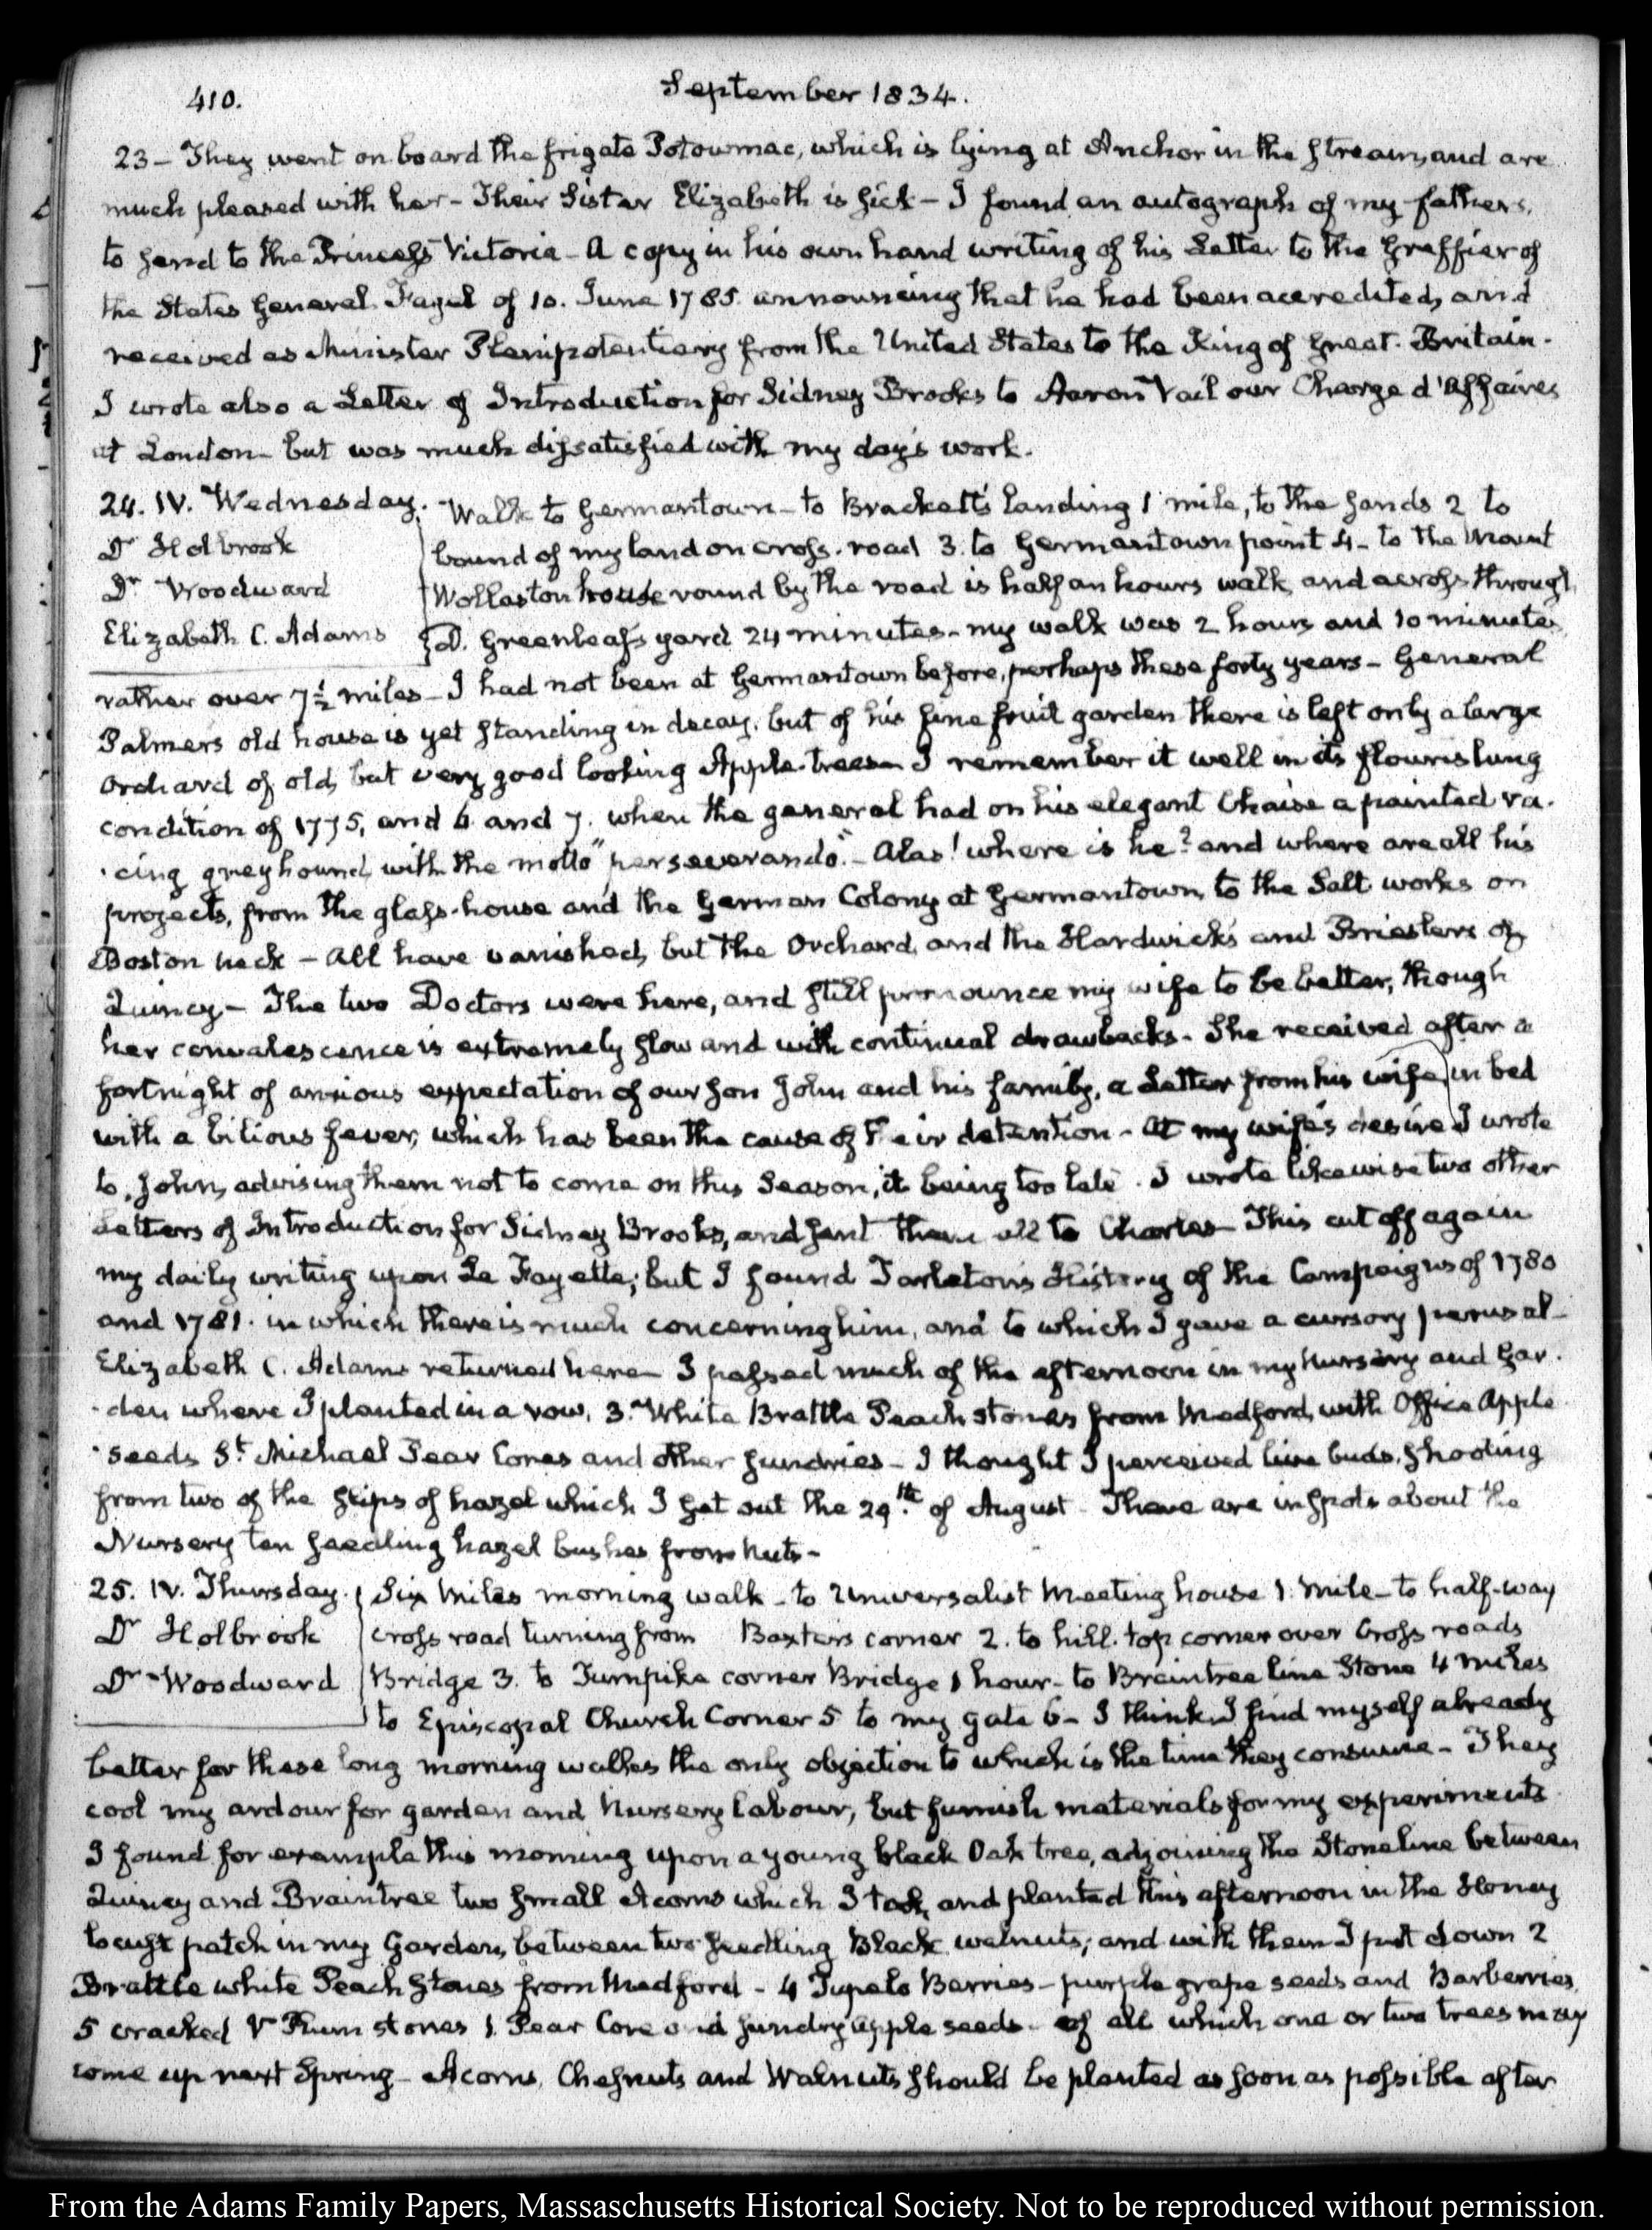 410.
September 1834.
23 - They went on board the frigate Potowmac, which is lying at Anchor in the stream, and are
much pleased with her - Their Sister Elizabeth is sick - I found an autograph of my fathers,
to send to the Princess Victoria - A copy in his own hand writing of his Letter to the Greffier of
the States General Fagel of 10. June 1785 announcing that he had been accredited, and
received as Minister Plenipotentiary from the United States to the King of Great-Britain.
I wrote also a Letter of Introduction for Sidney Brooks to Aaron Vail our Charge d'Affaires
at London - but was much dissatisfied with my day's work.
24. IV. Wednesday.
Dr Holbrook
Dr Woodward
Elizabeth C. Adams
Walk to Germantown - to Brackett's landing 1 mile, to the sands 2 to
bound of my land on cross-road 3. to Germantown point 4 - to the Mount
Wollaston house round by the road is half an hours walk and across through
D. Greenleaf's yard 24 minutes - my walk was 2 hours and 10 minutes,
rather over 7½ miles - I had not been at Germantown before, perhaps these forty years - General
Palmers old house is yet standing in decay, but of his fine fruit garden there is left only a large
Orchard of old, but very good looking Apple-trees - I remember it well in its flourishing
condition of 1775, and 6 and 7. when the general had on his elegant Chaise a painted ra-
-cing greyhound, with the motto "perseverando" - Alas! where is he? and where are all his
projects, from the glass-house and the German Colony at Germantown, to the Salt works on
Boston neck - All have vanished, but the Orchard, and the Hardwicks and Briesters of
Quincy - The two Doctors were here, and still pronounce my wife to be better, though
her convalescence is extremely slow and with continual drawbacks. She received after a
fortnight of anxious expectation of our son John and his family, a Letter from his wife, in bed
with a bilious fever, which has been the cause of their detention - At my wife's desire I wrote
to John, advising them not to come on this Season, it being too late. I wrote likewise two other
Letters of Introduction for Sidney Brooks, and sent them all to Charles - This cut off again
my daily writing upon La Fayette; but I found Tarleton's History of the Campaigns of 1780
and 1781. in which there is much concerning him, and to which I gave a cursory perusal -
Elizabeth C. Adams returned here - I passed much of the afternoon in my Nursery and Gar-
-den where I planted in a row, 3. White Brattle Peach stones from Medford, with Office Apple
-seeds St Michael Pear Cores and other sundries - I thought I perceived live buds shooting
from two of the slips of hazel which I set out the 29.th of August - There are in spots about the
Nursery ten seedling hazel bushes from nuts -
25. IV. Thursday.
Dr Holbrook
Dr Woodward
Six Miles morning walk - to Universalist Meeting house 1. Mile - to half-way
cross road turning from Baxters corner 2. to hill-top corner over Cross roads
Bridge 3. to Turnpike corner Bridge 1 hour - to Braintree line Stone 4 miles
to Episcopal Church Corner 5 to my gate 6 - I think I find myself already
better for these long morning walks the only objection to which is the time they consume - They
cool my ardour for garden and Nursery labour, but furnish materials for my experiments
I found for example this morning upon a young black Oak tree, adjoining the Stone line between
Quincy and Braintree two small Acorns which I took, and planted this afternoon in the Honey
locust patch in my Garden, between two seedling Black walnuts; and with them I put down 2
Brattle white Peach stones from Medford - 4 Tupelo Berries - purple grape seeds and Barberries,
5 cracked Plum stones 1. Pear Core and sundry apple seeds - of all which one or two trees may
come up next Spring - Acorns, Chesnuts and Walnuts should be planted as soon as possible after
From the Adams Family Papers, Massachusetts Historical Society. Not to be reproduced without permission.